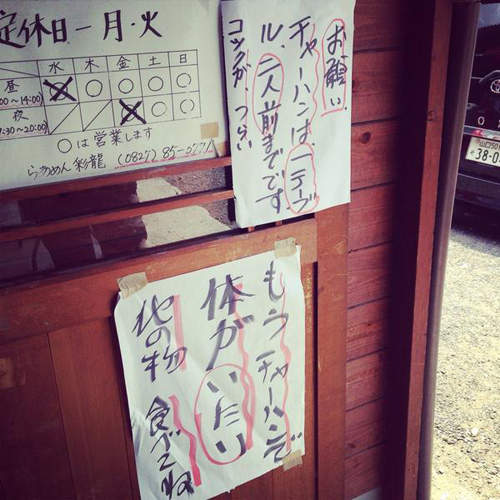 定休日－月・火
水 木 金 土 日
昼
00～14:00)
夜
:30～20:00)
○は営業します
らぁめん 彩龍 (0827) 85-3771
お願い
チャーハンは、一テーブ
ル、二人前までです
コックが、つらい
もうチャーハンで
体がいたい
他の物 食べてね
38-0